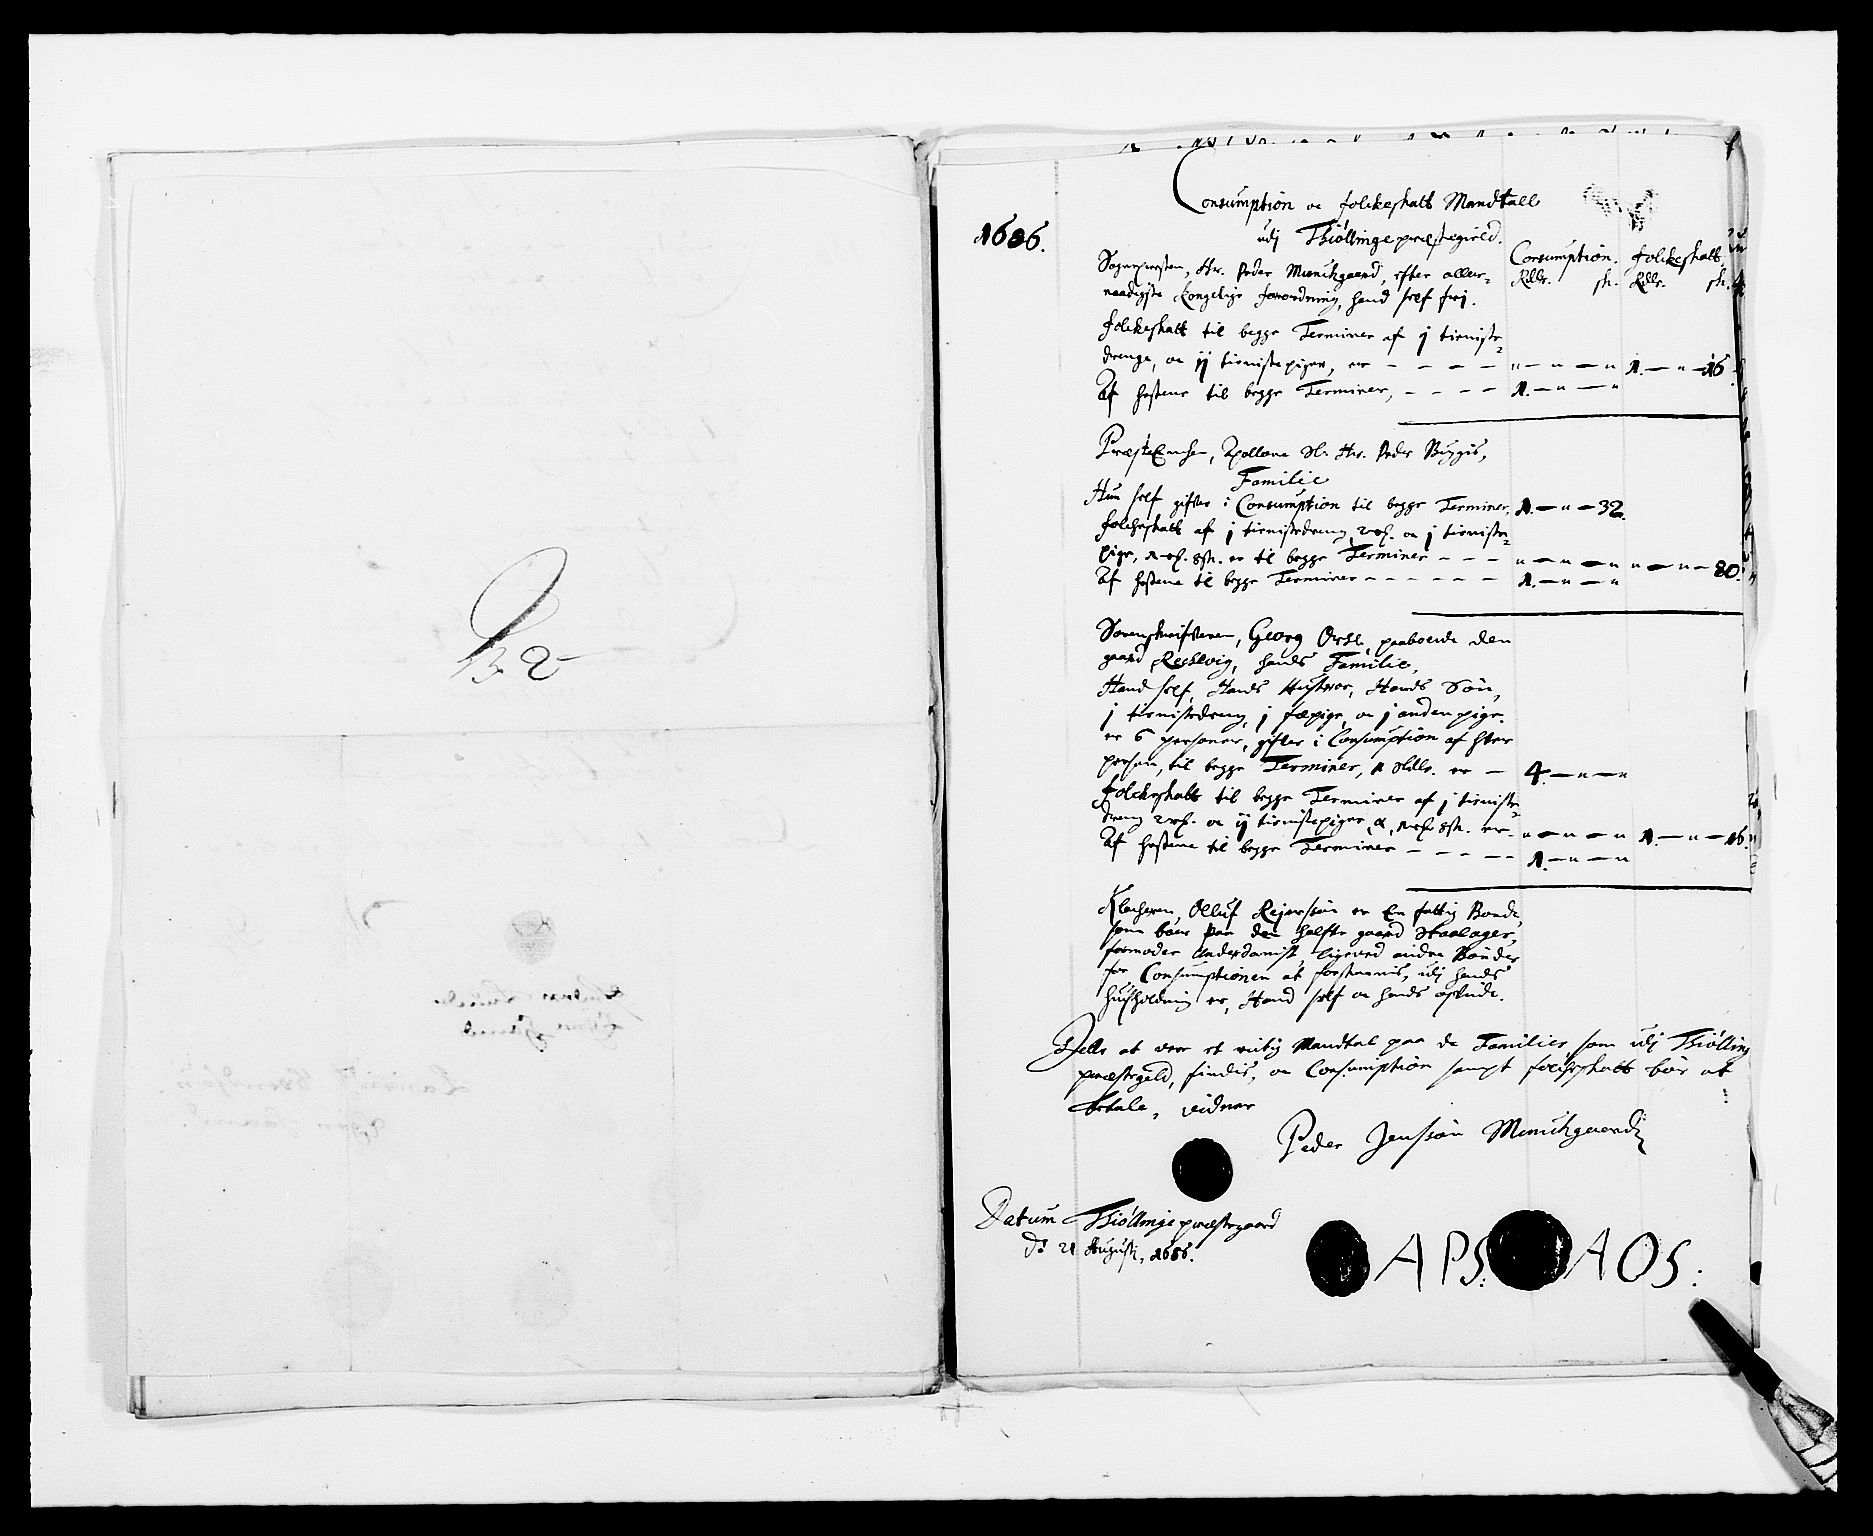 1686.
Consumption oc folckeskatt Mandtall
udj Thiøllinge præstegield.
Consumption. folckeskatt.
Rdlr. sk. Rdlr. sk.
Sognepresten, Hr. Peder Munchgaard, efter aller-
naadigste kongelige forordning, hand self frj.
folckeskatt til begge Terminer af j tieniste
drenge, oc ij tienistepiger, er - - - - „ — „ — „ 1. — „ — 16
Af hestene til begge Terminer, - - - - 1. — „ — „
PræsteEncken, Apollone Sl. Hr. Peder Buggis,
Familie
Hun self gifver i Consumption til begge Terminer, 1. — „ — 32.
folckeskatt af j tienistedreng, 2 rß. oc j tieniste
pige, 1 rß. 8 sk. er til begge Terminer - - - „ — „ — „ „ — „ — 80.
Af hestene til begge Terminer - - - - - - 1. — „ — „
Sorenskrifveren, Georg paaboende den
gaard Rechevig, hands Familie,
Hand self, Hands Hustroe, Hands Søn,
j tienistedreng, j fæpige, oc j anden pige.
er 6 personer, gifver i Consumption af hver
person, til begge Terminer, er — 4. — „ — „
folckeskatt til begge Terminer af j tieniste
dreng 2 rß. oc ij tienistepiger, a, 1 rß 8 sk. er - „ — „ — „ 1. — „ — 16.
Af hestene til begge Terminer - - - - 1. — „ — „
Klocheren, Olluf Rejerssøn er En fattig Bonde,
som boer paa den halfve gaard Haalager,
formoder Underdanist, ligeved andre Bønder
for Consumptionen at forskaanis, udj hands
husholdning er, Hand self oc hands
Dette at vere et rictig Mandtal paa de Familier som udj Thiølling
præstegeld, findis, oc Consumption sampt folckeskatt bør at
betale, vidner
Peder Jenssøn Munchgaard
Datum Thiøllinge præstegaard
Dⁿ 21 Augusti, 1686.
APS: AOS: